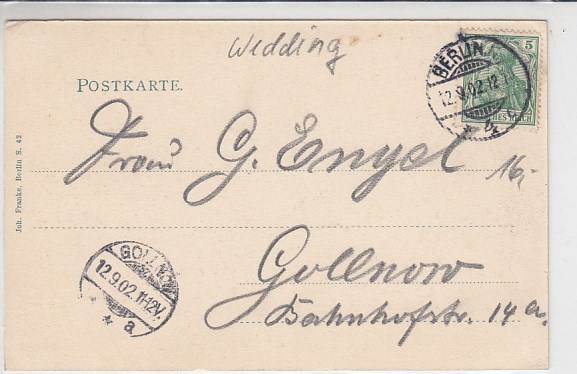 Wedding
POSTKARTE.
5
BERLIN
12.9.02.12
DEUTSCHES REICH
Frau G. Engel
16,-
Gollnow
Bahnhofstr. 14 a.
GOLLNOW
12.9.02. 11-12V.
* a
Joh. Franke, Berlin S. 42